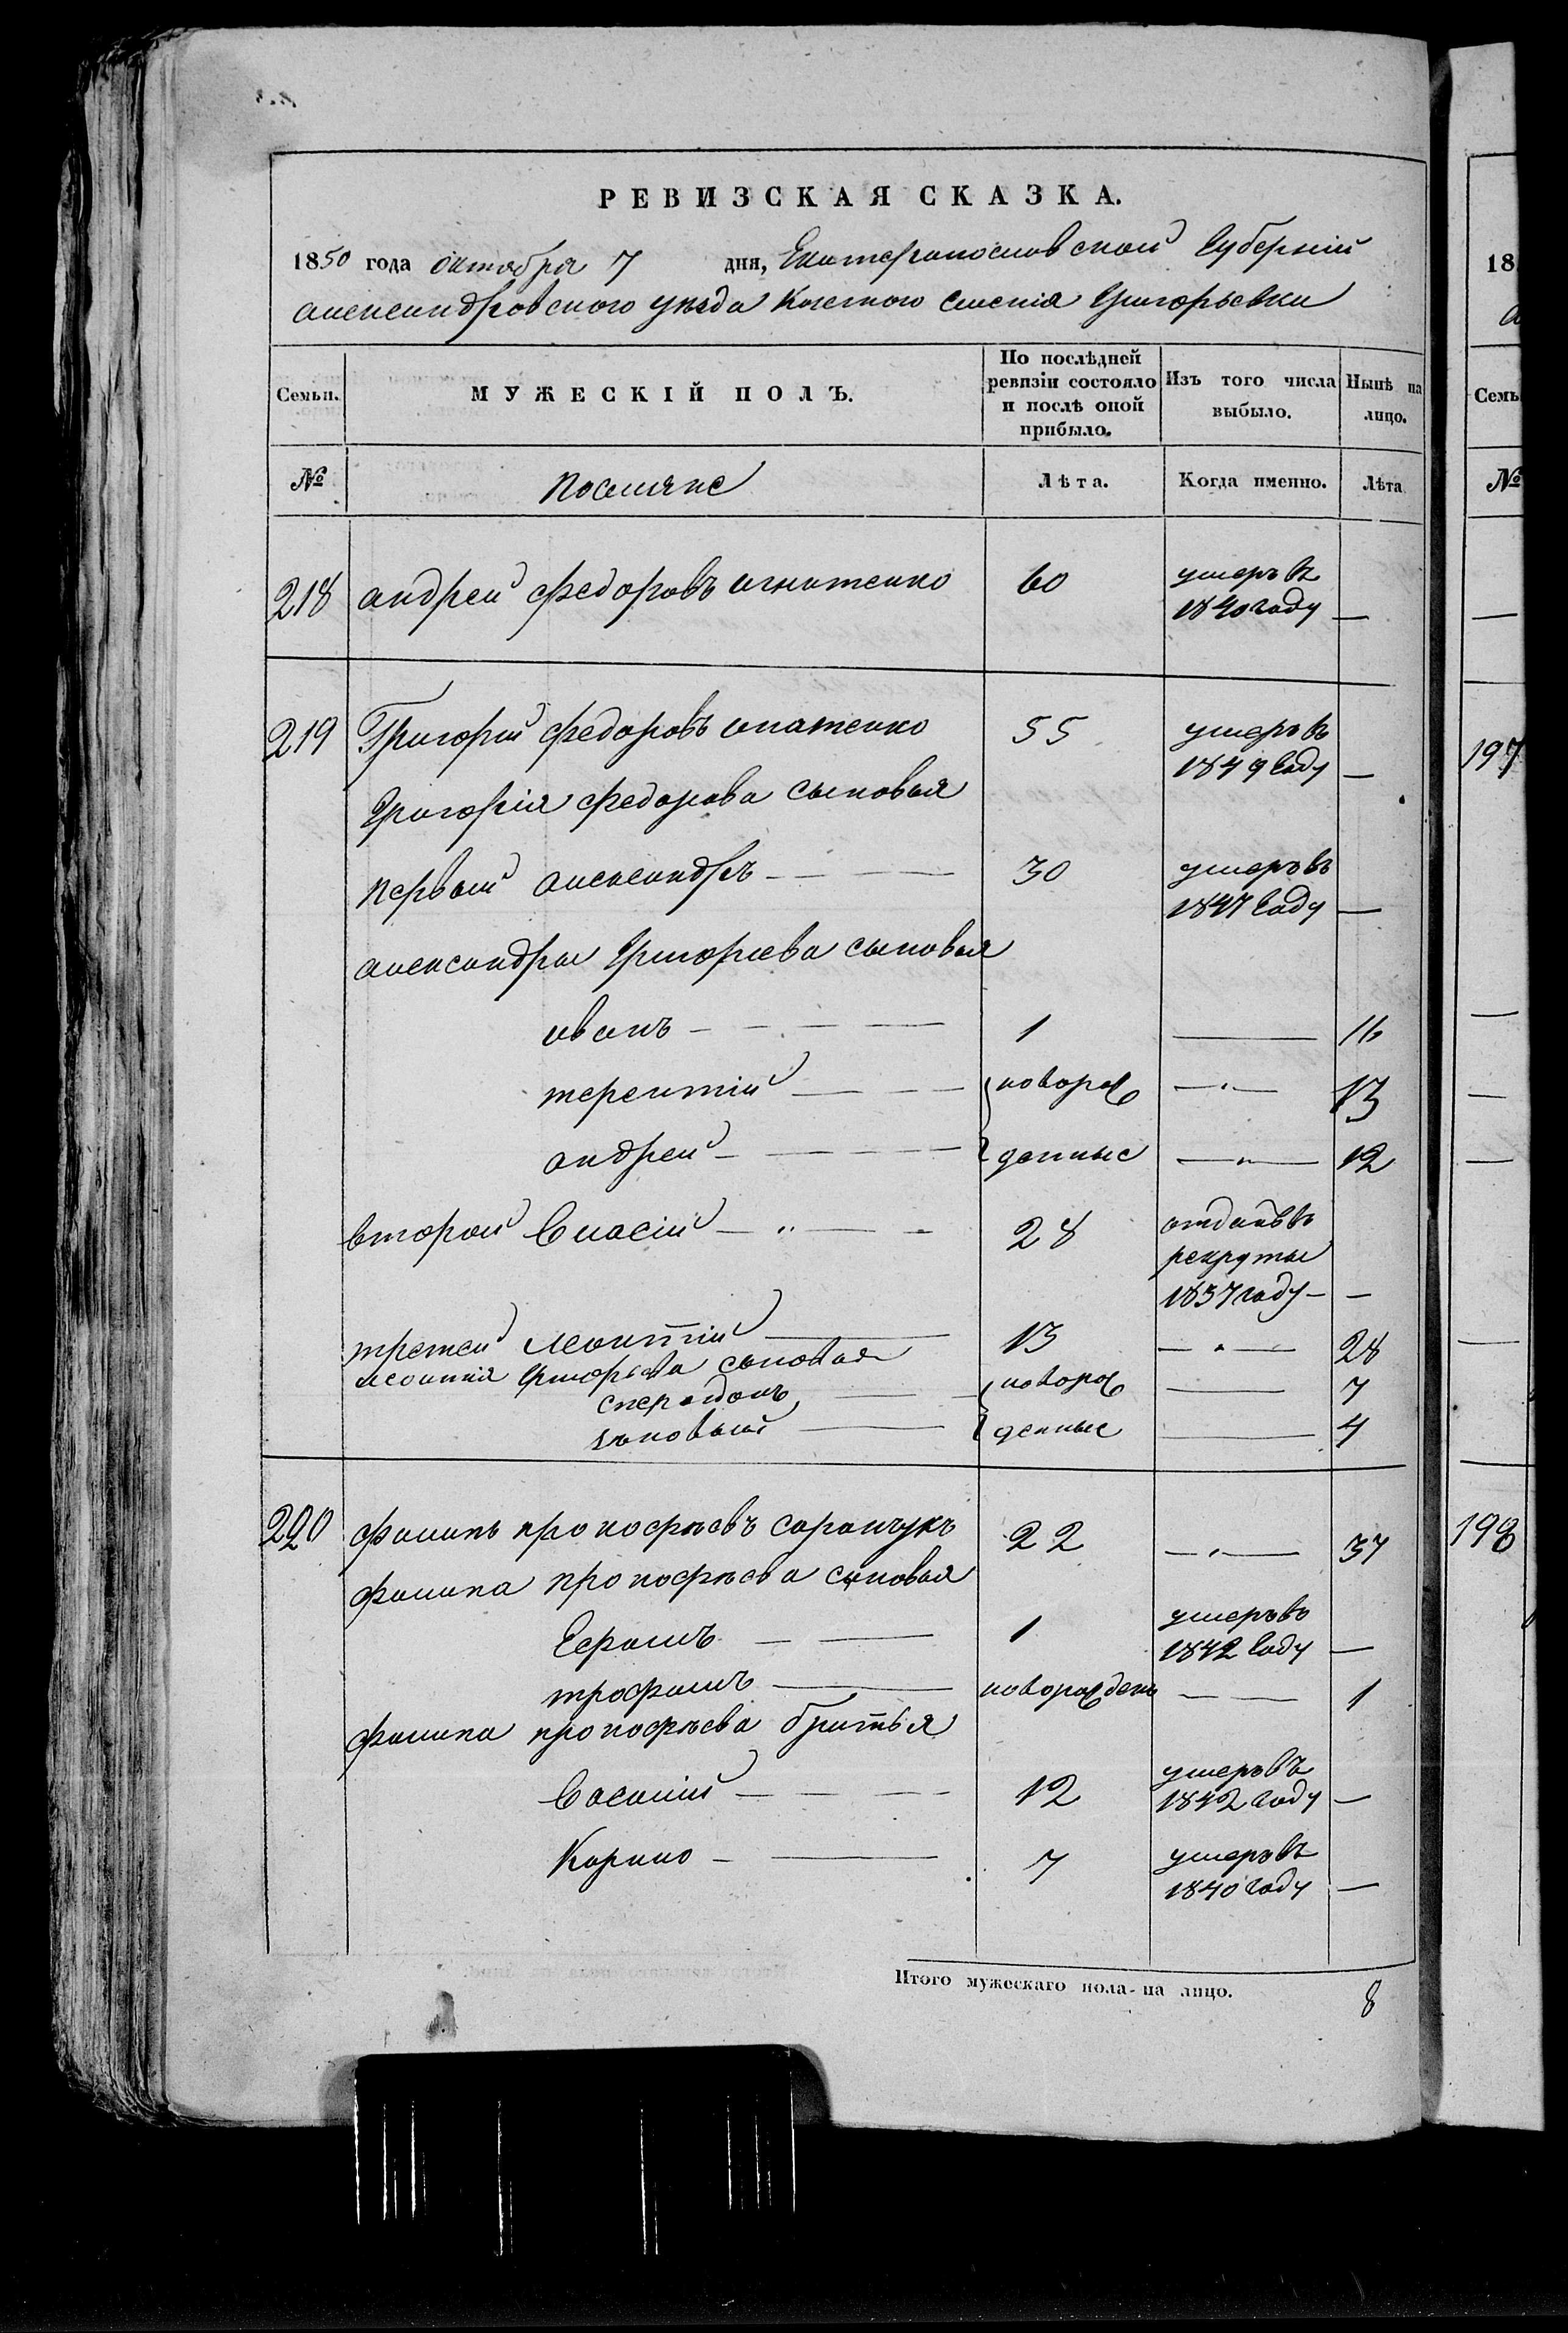 РЕВИЗСКАЯ СКАЗКА.
1850 года октября 7 дня, Екатеринославской Губернии
александровского уезда Казенного селения Григорьевки
Семьи. МУЖЕСКІЙ ПОЛЪ. По послѣдней ревизіи состояло и послѣ оной прибыло. Изъ того числа выбыло. Нынѣ на лицо.
№ поселяне Лѣта. Когда именно. Лѣта
218 андрей федоровъ игнатенко 60 умеръ въ 1840 году —
219 Григорий федоровъ игнатенко 55 умеръ въ 1849 году —
Григория федорова сыновья
первый александръ — — — 30 умеръ въ 1847 году —
александра Григориева сыновья
иванъ — — — 1 — 16
терентий — — новорож — 13
андрей — — — денные — 12
второй Власий — — 28 отданъ въ рекруты 1837 году — —
третей леонтий — 13 — 28
леонтия Григорьева сыновья
сперидонъ — новорож — 7
зиновий — денные — 4
220 филипъ прокофиевъ саранчукъ 22 — 37
филипа прокофиева сыновья
Ефимъ — — 1 умеръ въ 1842 году —
трофимъ — новорожденъ — — 1
филипа прокофиева братья
Василий — — — 12 умеръ въ 1842 году —
Карпио — — 7 умеръ въ 1840 году —
Итого мужескаго пола на лицо. 8
18
Семь
№
197
198